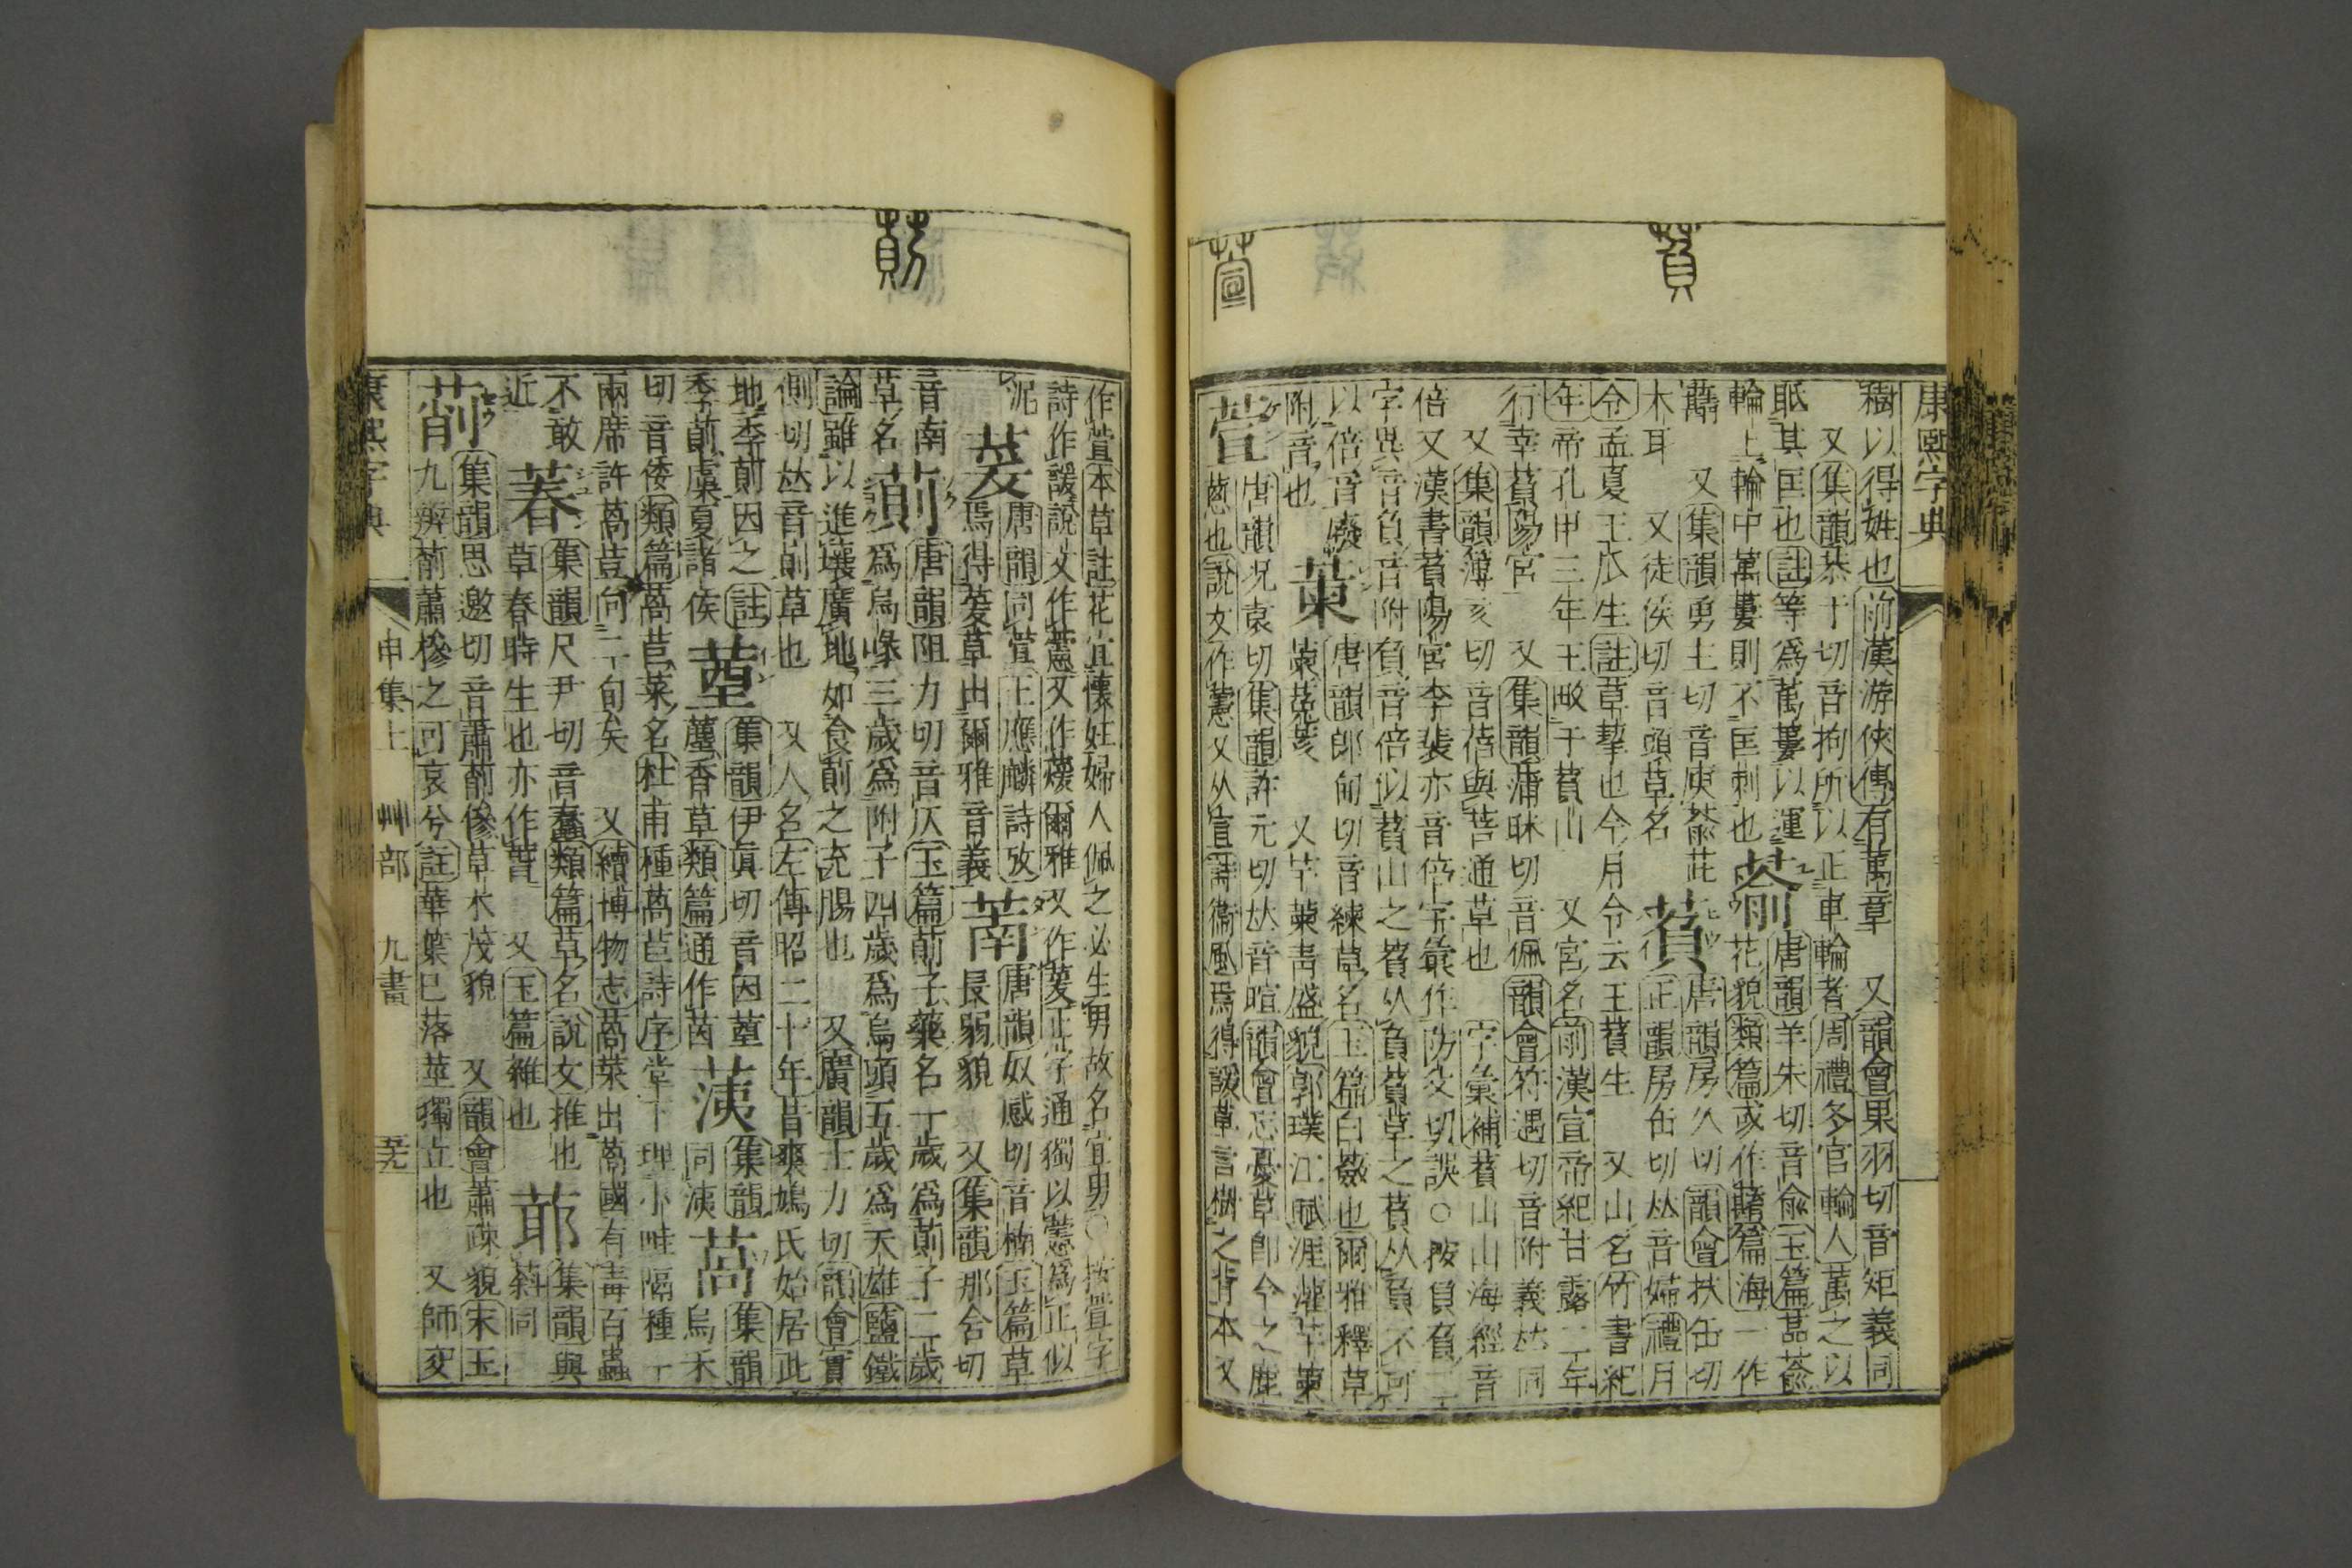 康熙字典
䕌以得姓也前漢游俠傳有萬章 又韻會果羽切音矩義同
又集韻恭于切音拘所以正車輪者周禮冬官輪人萬之以
眂其匡也註等爲萬蔞以運
輪上輪中萬蔞則不匡刺也
萮
唐韻羊朱切音兪玉篇萮
花貌類篇或作蕍篇海一作
又集韻勇主切音庾萮茈
木耳 又徒侯切音頭草名
萯
唐韻房久切韻會扶缶切
正韻房缶切𠀤音婦禮月
令孟夏王瓜生註草挈也今月令云王萯生 又山名竹書紀
年帝孔甲三年王畋于萯山 又宮名前漢宣帝紀甘露二年
行幸萯陽宮 又集韻蒲昧切音佩韻會符遇切音附義𠀤同
又集韻簿亥切音蓓與菩通草也 字彙補萯山山海經音
倍又漢書萯陽宮李裴亦音倍字彙作防父切誤○按負負二
字異音負音附負音倍以萯山之萯从負萯草之萯从負不可
以倍音廢
附音也
萰
唐韻郎甸切音練草名玉篇白蘞也爾雅釋草
萰菟荄 又芊萰靑盛貌郭璞江賦涯灌芊萰
萱
唐韻况袁切集韻許元切𠀤音暄韻會忘憂草卽今之鹿
蔥也說文作藼又从宣詩衞風焉得諼草言樹之背本又
作萱本草註花宜懷妊婦人佩之必生男故名宜男○按萱字
詩作諼說文作藼又作蕿爾雅又作萲正字通獨以藼爲正似
泥
萲
唐韻同萱王應麟詩攷
焉得萲草出爾雅音義
萳
唐韻奴感切音楠玉篇草
長弱貌 又集韻那含切
音南
草名
萴
唐韻阻力切音仄玉篇萴子藥名一歲爲萴子二歲
爲烏喙三歲爲附子四歲爲烏頭五歲爲天雄鹽鐵
論雖以進壤廣地如食萴之充腸也 又廣韻士力切韻會實
側切𠀤音崱草也 又人名左傳昭二十年昔爽鳩氏始居此
地季萴因之註
季萴虞夏諸侯
䓰
集韻伊眞切音因䓰
䕄香草類篇通作茵
𦸉
集韻
同洟
萵
集韻
烏禾
切音倭類篇萵苣菜名杜甫種萵苣詩序堂下理小畦隔種一
兩席許萵苣向二旬矣 又續博物志萵菜出萵國有毒百蟲
不敢
近
萶
集韻尺尹切音蠢類篇草名說文推也
草春時生也亦作䓐 又玉篇雜也
䓉
集韻與
斜同
萷
集韻思邀切音蕭萷槮草木茂貌 又韻會蕭疎貌宋玉
九辨萷蕭槮之可哀兮註華葉已落莖獨立也 又師交
康熙字典
申集上 艸部 九畫